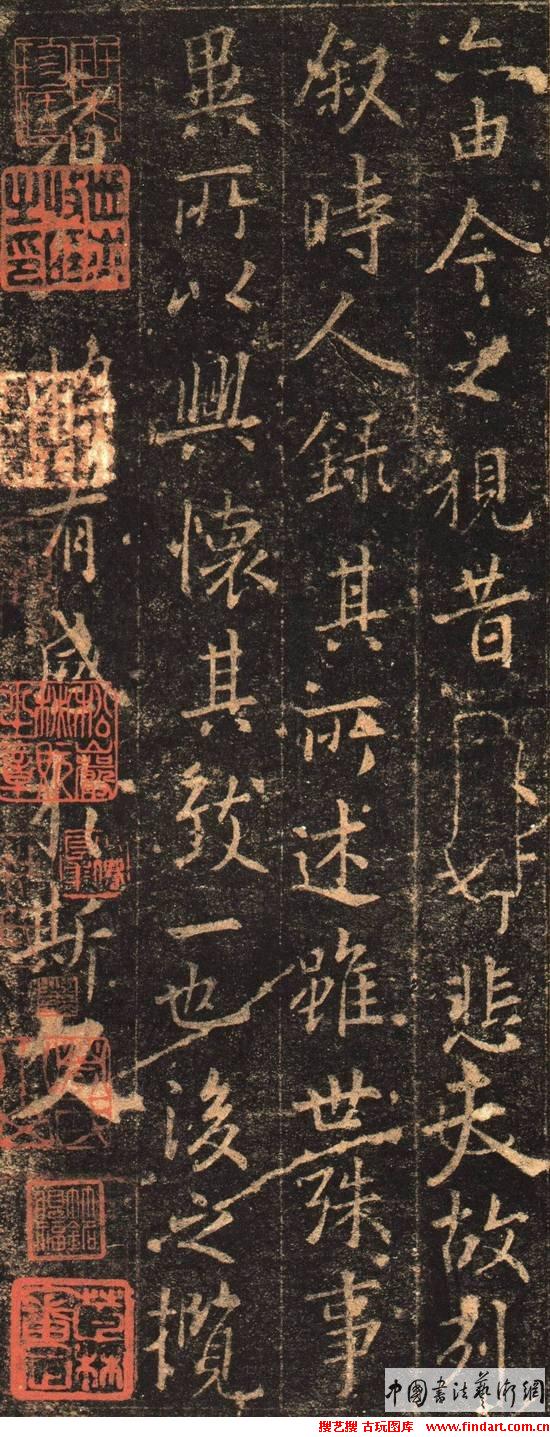 亦由今之視昔悲夫故列
叙時人錄其所述雖世殊事
異所以興懷其致一也後之攬
者將有感於斯文
中國書法藝術網
搜艺搜 古玩图库: www.findart.com.cn